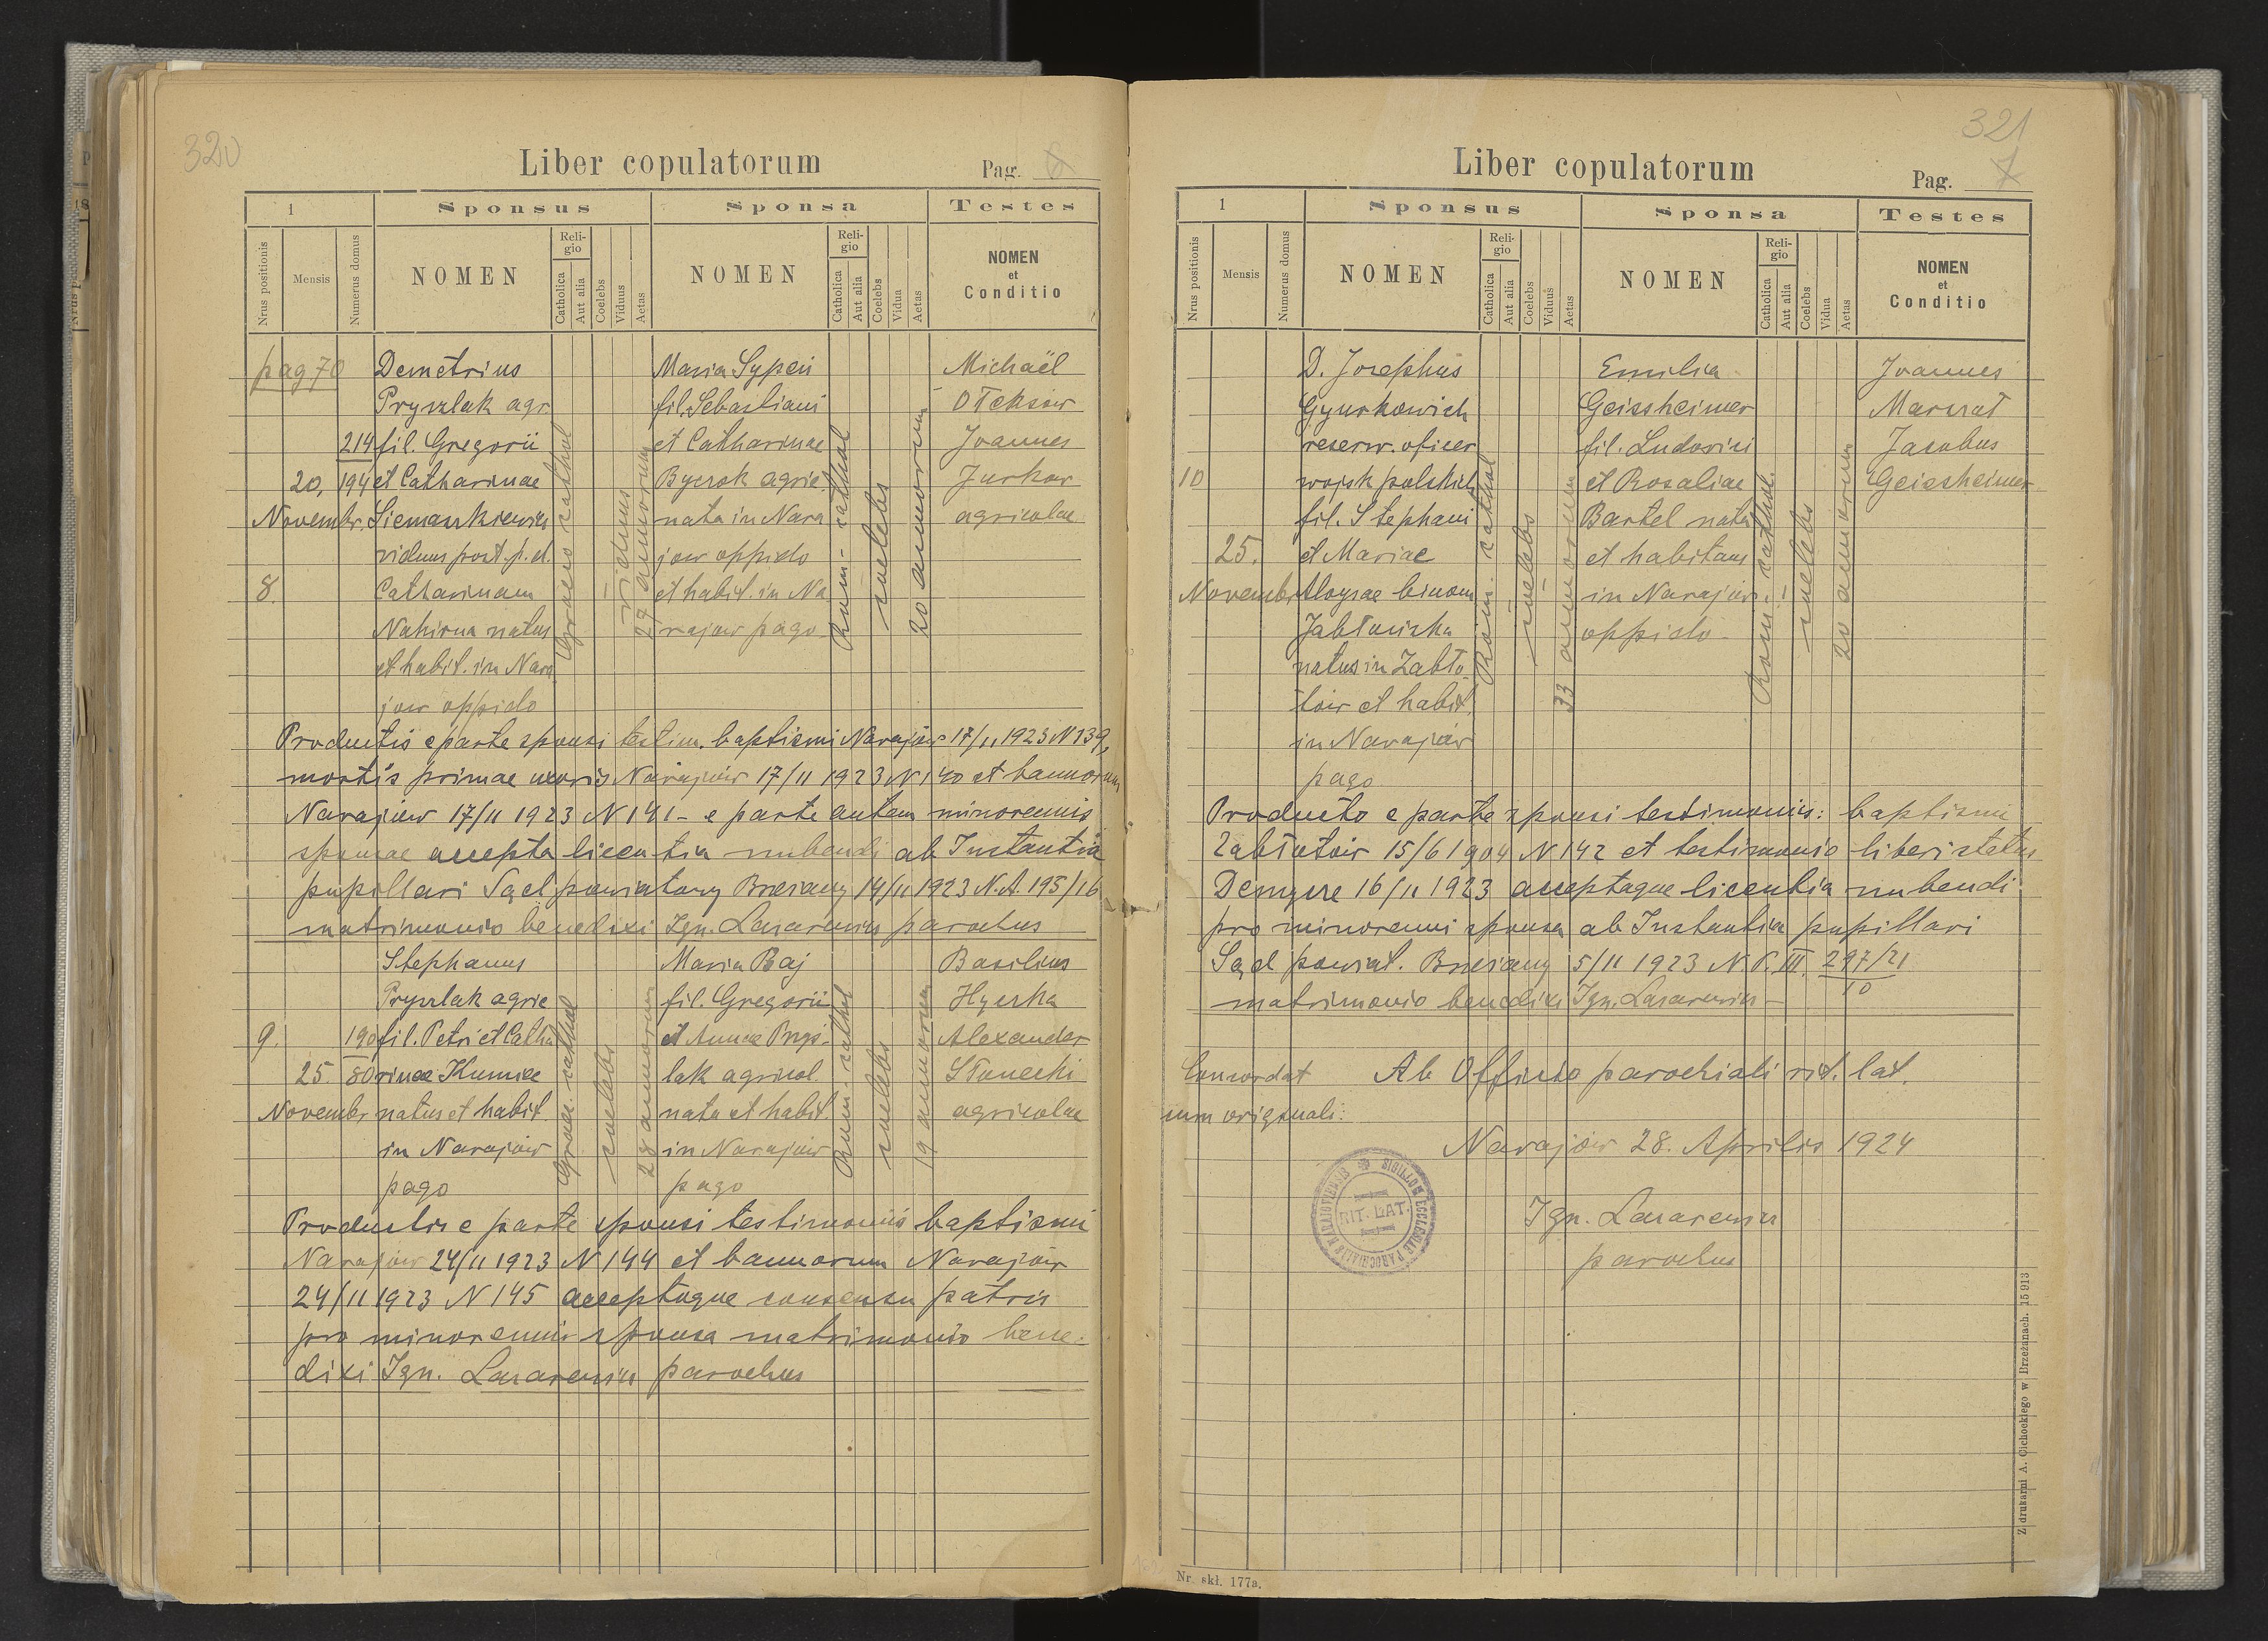 320
Liber copulatorum
Pag. 6
1
Sponsus
Sponsa
Testes
Nrus positionis
Mensis
Numerus domus
NOMEN
Religio
Catholica
Aut alia
Coelebs
Viduus
Aetas
NOMEN
Religio
Catholica
Aut alia
Coelebs
Vidua
Aetas
NOMEN
et
Conditio
pag 70 Demetrius Maria Sypeń Michaël
Pryszlak agr. fil. Sebastiani Ołeksów
214 fil. Gregorii et Catharinae Joannes
20, 194 et Catharinae Byczok agric. Jurkow
Novembr. Siemaszkiewicz nata in Nara agricolae
viduus post p. d. jow oppido
8. Catharinam et habit. in Na
Nahirna natus rajow pago
et habit. in Nara
jow oppido
Graeco cathol
viduus
29 annorum
Rom-cathol
coelebs
20 annorum
Productis e parte sponsi testim. baptismi Narajów 17/11 1923 N 139,
mortis primae uxoris Narajów 17/11 1923 N 140 et bannorum
Narajów 17/11 1923 N 141 - e parte autem minorennis
sponsae accepta licentia nubendi ab Instantia
pupillari Sąd powiatowy Brzeżany 14/11 1923 N. A. 195/16
matrimonio benedixi Ign. Lazarewicz parochus
Stephanus Maria Baj Basilius
Pryszlak agric fil. Gregorii Hyczka
9. 190 fil. Petri et Catha et Annae Prys- Alexander
25. 80 rinae Kumice lak agricol. Słonecki
Novembr natus et habit. nata et habit. agricolae
in Narajów in Narajów
pago pago
Graec. cathol
coelebs
28 annorum
Rom-cathol
coelebs
19 annorum
Productis e parte sponsi testimoniis baptismi
Narajów 24/11 1923 N 144 et bannorum Narajów
24/11 1923 N 145 acceptoque consensu patris
pro minorenni sponsa matrimonio bene-
dixi Ign. Lazarewicz parochus
321
Liber copulatorum
Pag. 7
1
Sponsus
Sponsa
Testes
Nrus positionis
Mensis
Numerus domus
NOMEN
Religio
Catholica
Aut alia
Coelebs
Viduus
Aetas
NOMEN
Religio
Catholica
Aut alia
Coelebs
Vidua
Aetas
NOMEN
et
Conditio
D. Josephus Emilia Joannes
Gyurkowich Geissheimer Marszał
reserw. oficer fil. Ludovici Jacobus
10 wojsk polskich et Rosaliae Geissheimer
fil. Stephani Bartel nata
25. et Mariae et habitans
Novembr Aloysae binom in Narajów
Jabłońska oppido
natus in Zabło
tow et habit.
in Narajów
pago
Rom. cathol
coelebs
33 annorum
Rom. cathol.
coelebs
20 annorum
Producto e parte sponsi testimoniis: baptismi
Zabłotów 15/6 1904 N 142 et testimonio liberi status
Demycze 16/11 1923 acceptaque licentia nubendi
pro minorenni sponsa ab Instantia pupillari
Sąd powiat. Brzeżany 5/11 1923 N P. III. 297/21
10
matrimonio benedixi Ign. Lazarewicz -
Concordat Ab Officio parochiali rit. lat.
cum originali:
Narajów 28. Aprilis 1924
SIGILLUM ECCLESIAE PAROCHIALIS NARAJOVIENSIS
RIT. LAT.
Ign. Lazarewicz
parochus
Z drukarni A. Cichockiego w Brzeżanach. 15 913
Nr. skł. 177a.